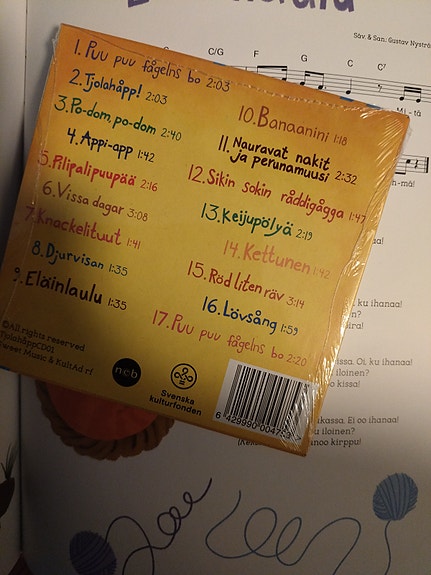 Säv. & San: Gustav Nyströ
C/G
F
G
C
C⁷
1. Puu puu fågelns bo 2:03
2. Tjolahåpp! 2:03
3. Po-dom, po-dom 2:40
4. Appi-app 1:42
5. Pilipalipuupää 2:16
6. Vissa dagar 3:08
7. Knackelituut 1:41
8. Djurvisan 1:35
9. Eläinlaulu 1:35
10. Banaanini 1:18
11. Nauravat nakit
ja perunamuusi 2:32
12. Sikin sokin råddigågga 1:47
13. Keijupölyä 2:19
14. Kettunen 1:42
15. Röd liten räv 3:14
16. Lövsång 1:59
17. Puu puu fågelns bo 2:20
©All rights reserved
TjolahåppCD01
Sweet Music & KultAd rf
ncb
Svenska
kulturfonden
6 429990 004
Mi - tä
h-mä!
aa!
ku ihanaa!
ira!
issa. Oi, ku ihanaa!
iloinen?
o kissa!
ikassa. Ei oo ihanaa!
u iloinen?
noo kirppu!